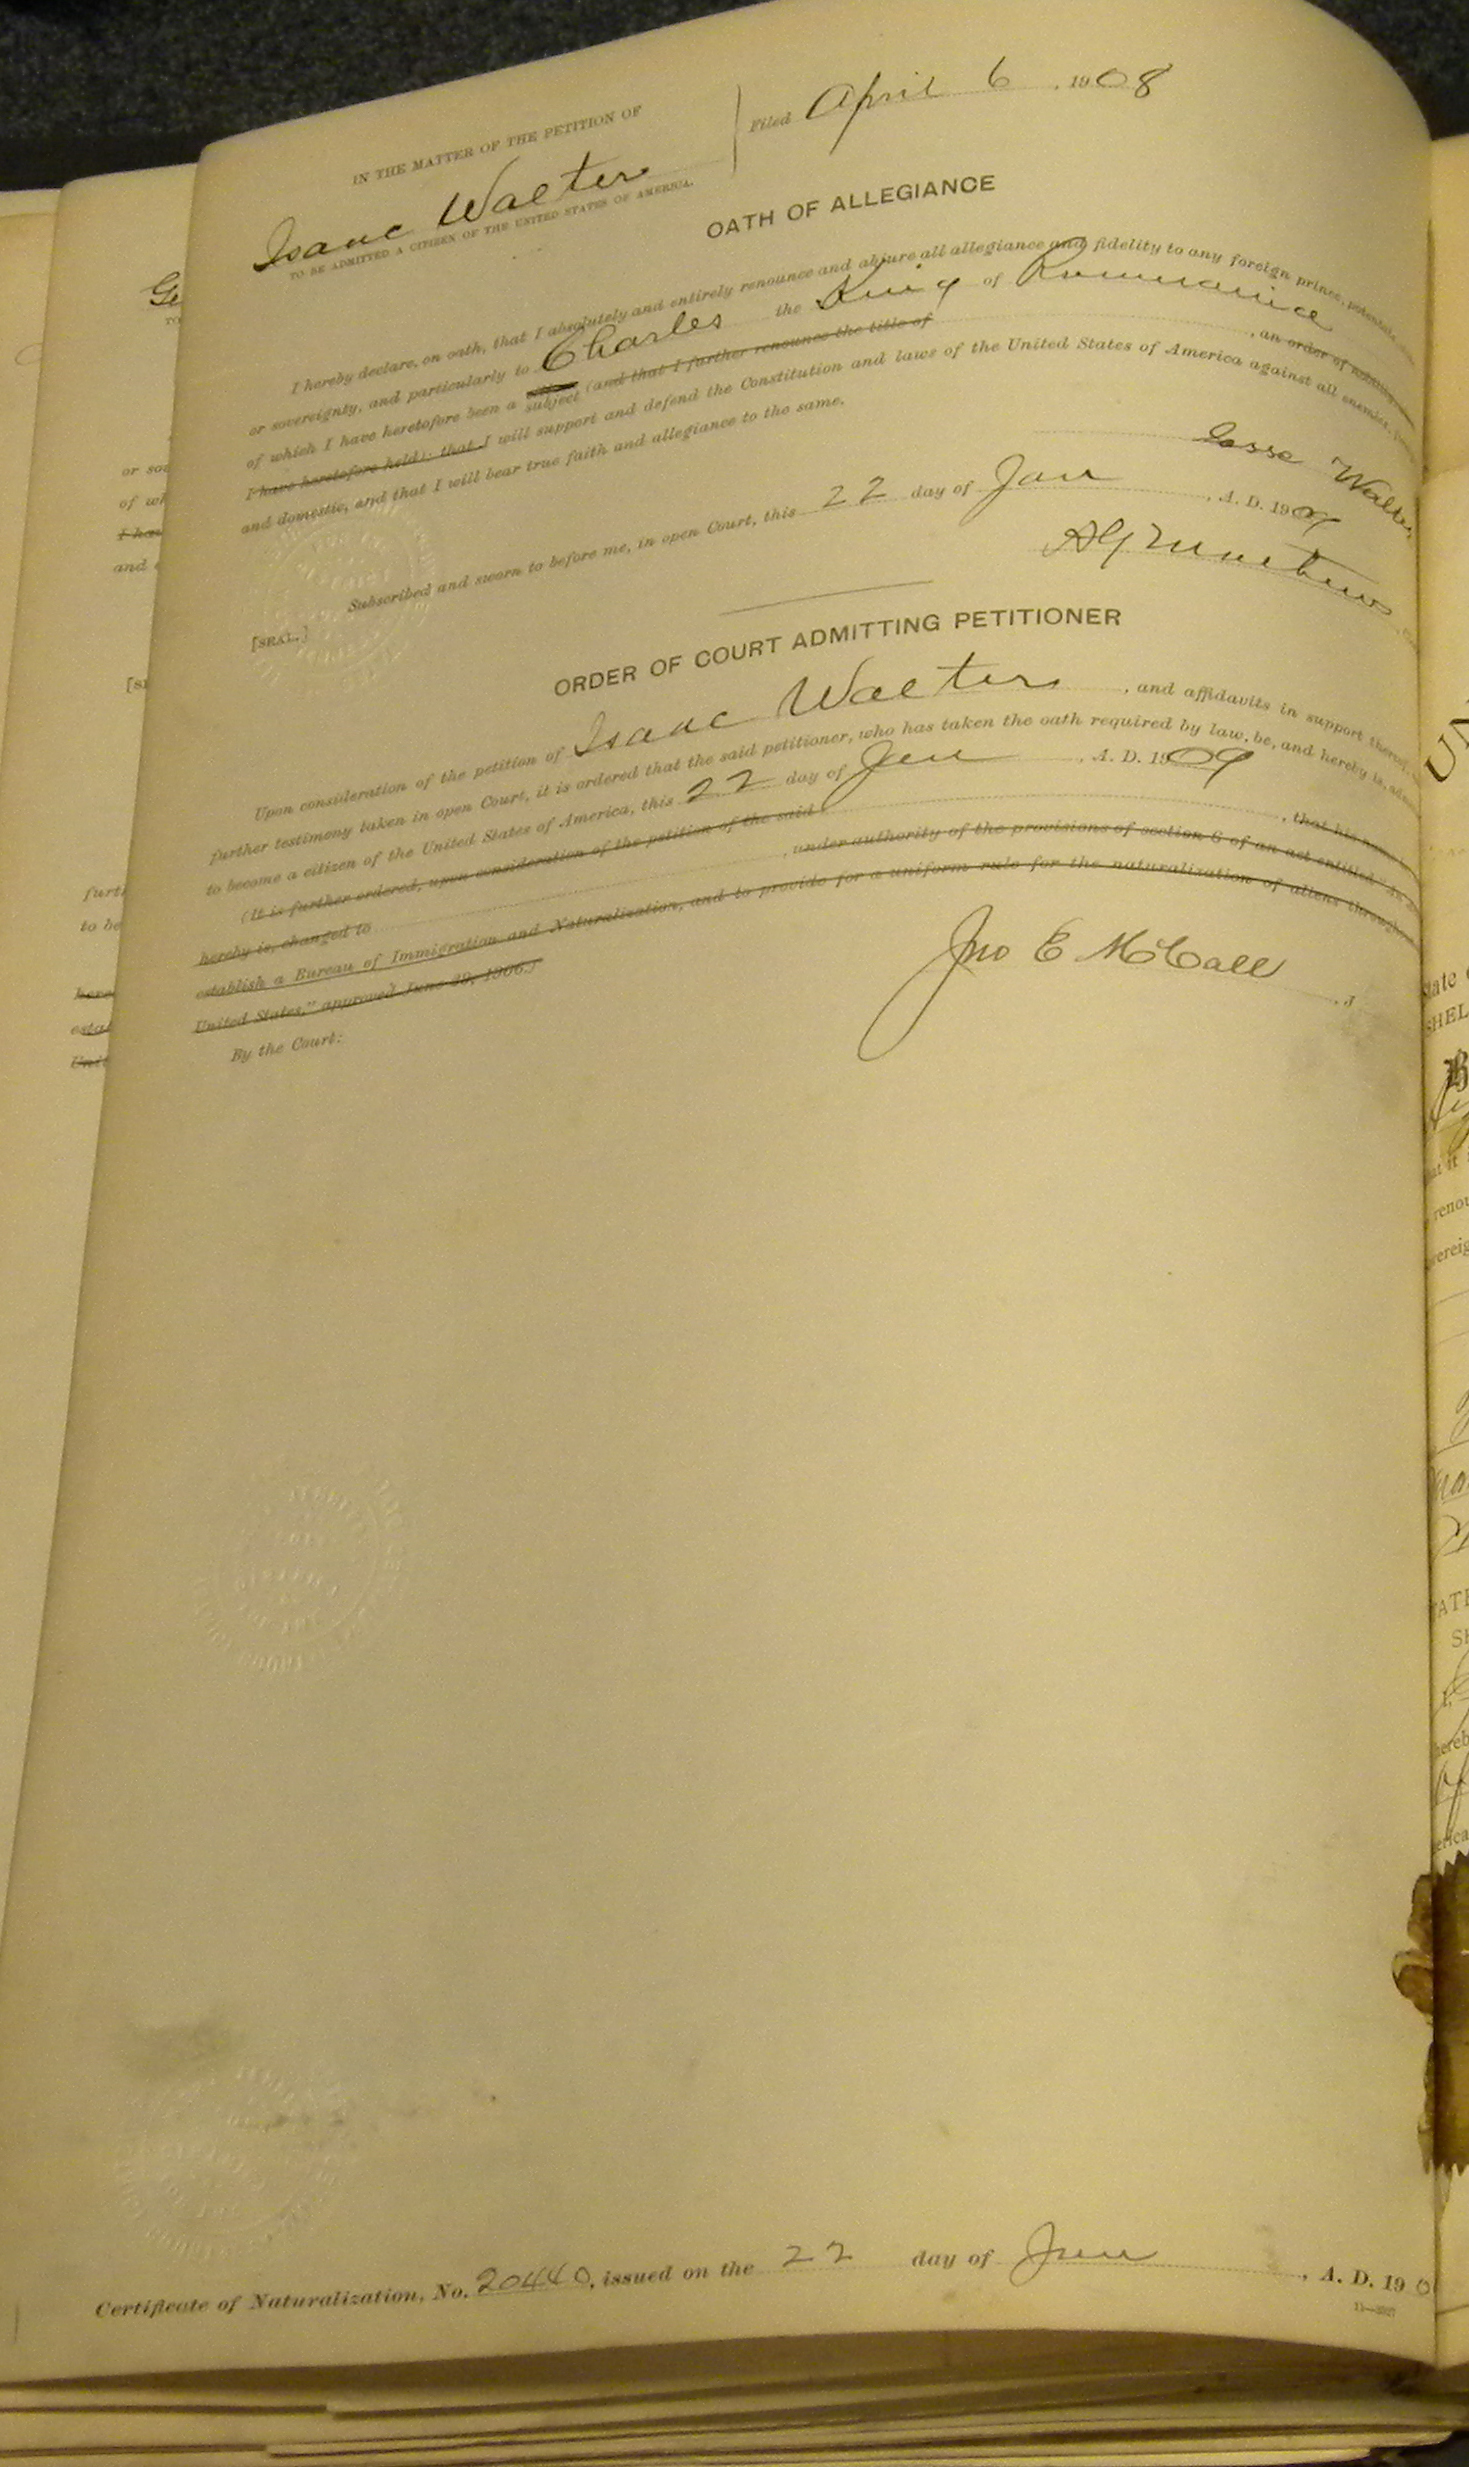 IN THE MATTER OF THE PETITION OF
Isaac Walters
TO BE ADMITTED A CITIZEN OF THE UNITED STATES OF AMERICA.
Filed April 6, 1908
OATH OF ALLEGIANCE
I hereby declare, on oath, that I absolutely and entirely renounce and abjure all allegiance and fidelity to any foreign prince, potentate
or sovereignty, and particularly to Charles the King of Rummania
of which I have heretofore been a subject (and that I further renounce the title of , an order of
I have heretofore held); that I will support and defend the Constitution and laws of the United States of America against all enemies,
and domestic, and that I will bear true faith and allegiance to the same.
Subscribed and sworn to before me, in open Court, this 22 day of Jan , A. D. 1909
[SEAL.]
ORDER OF COURT ADMITTING PETITIONER
Upon consideration of the petition of Isaac Walters , and affidavits in support thereof,
further testimony taken in open Court, it is ordered that the said petitioner, who has taken the oath required by law, be, and hereby is,
to become a citizen of the United States of America, this 22 day of Jan , A. D. 1909
(It is further ordered, upon consideration of the petition of the said , that his
hereby is, changed to , under authority of the provisions of section 6 of an act entitled
establish a Bureau of Immigration and Naturalization, and to provide for a uniform rule for the naturalization of aliens
United States," approved June 29, 1906.)
By the Court:
Jno E McCall
, J
Certificate of Naturalization, No. 20440, issued on the 22 day of Jan , A. D. 190